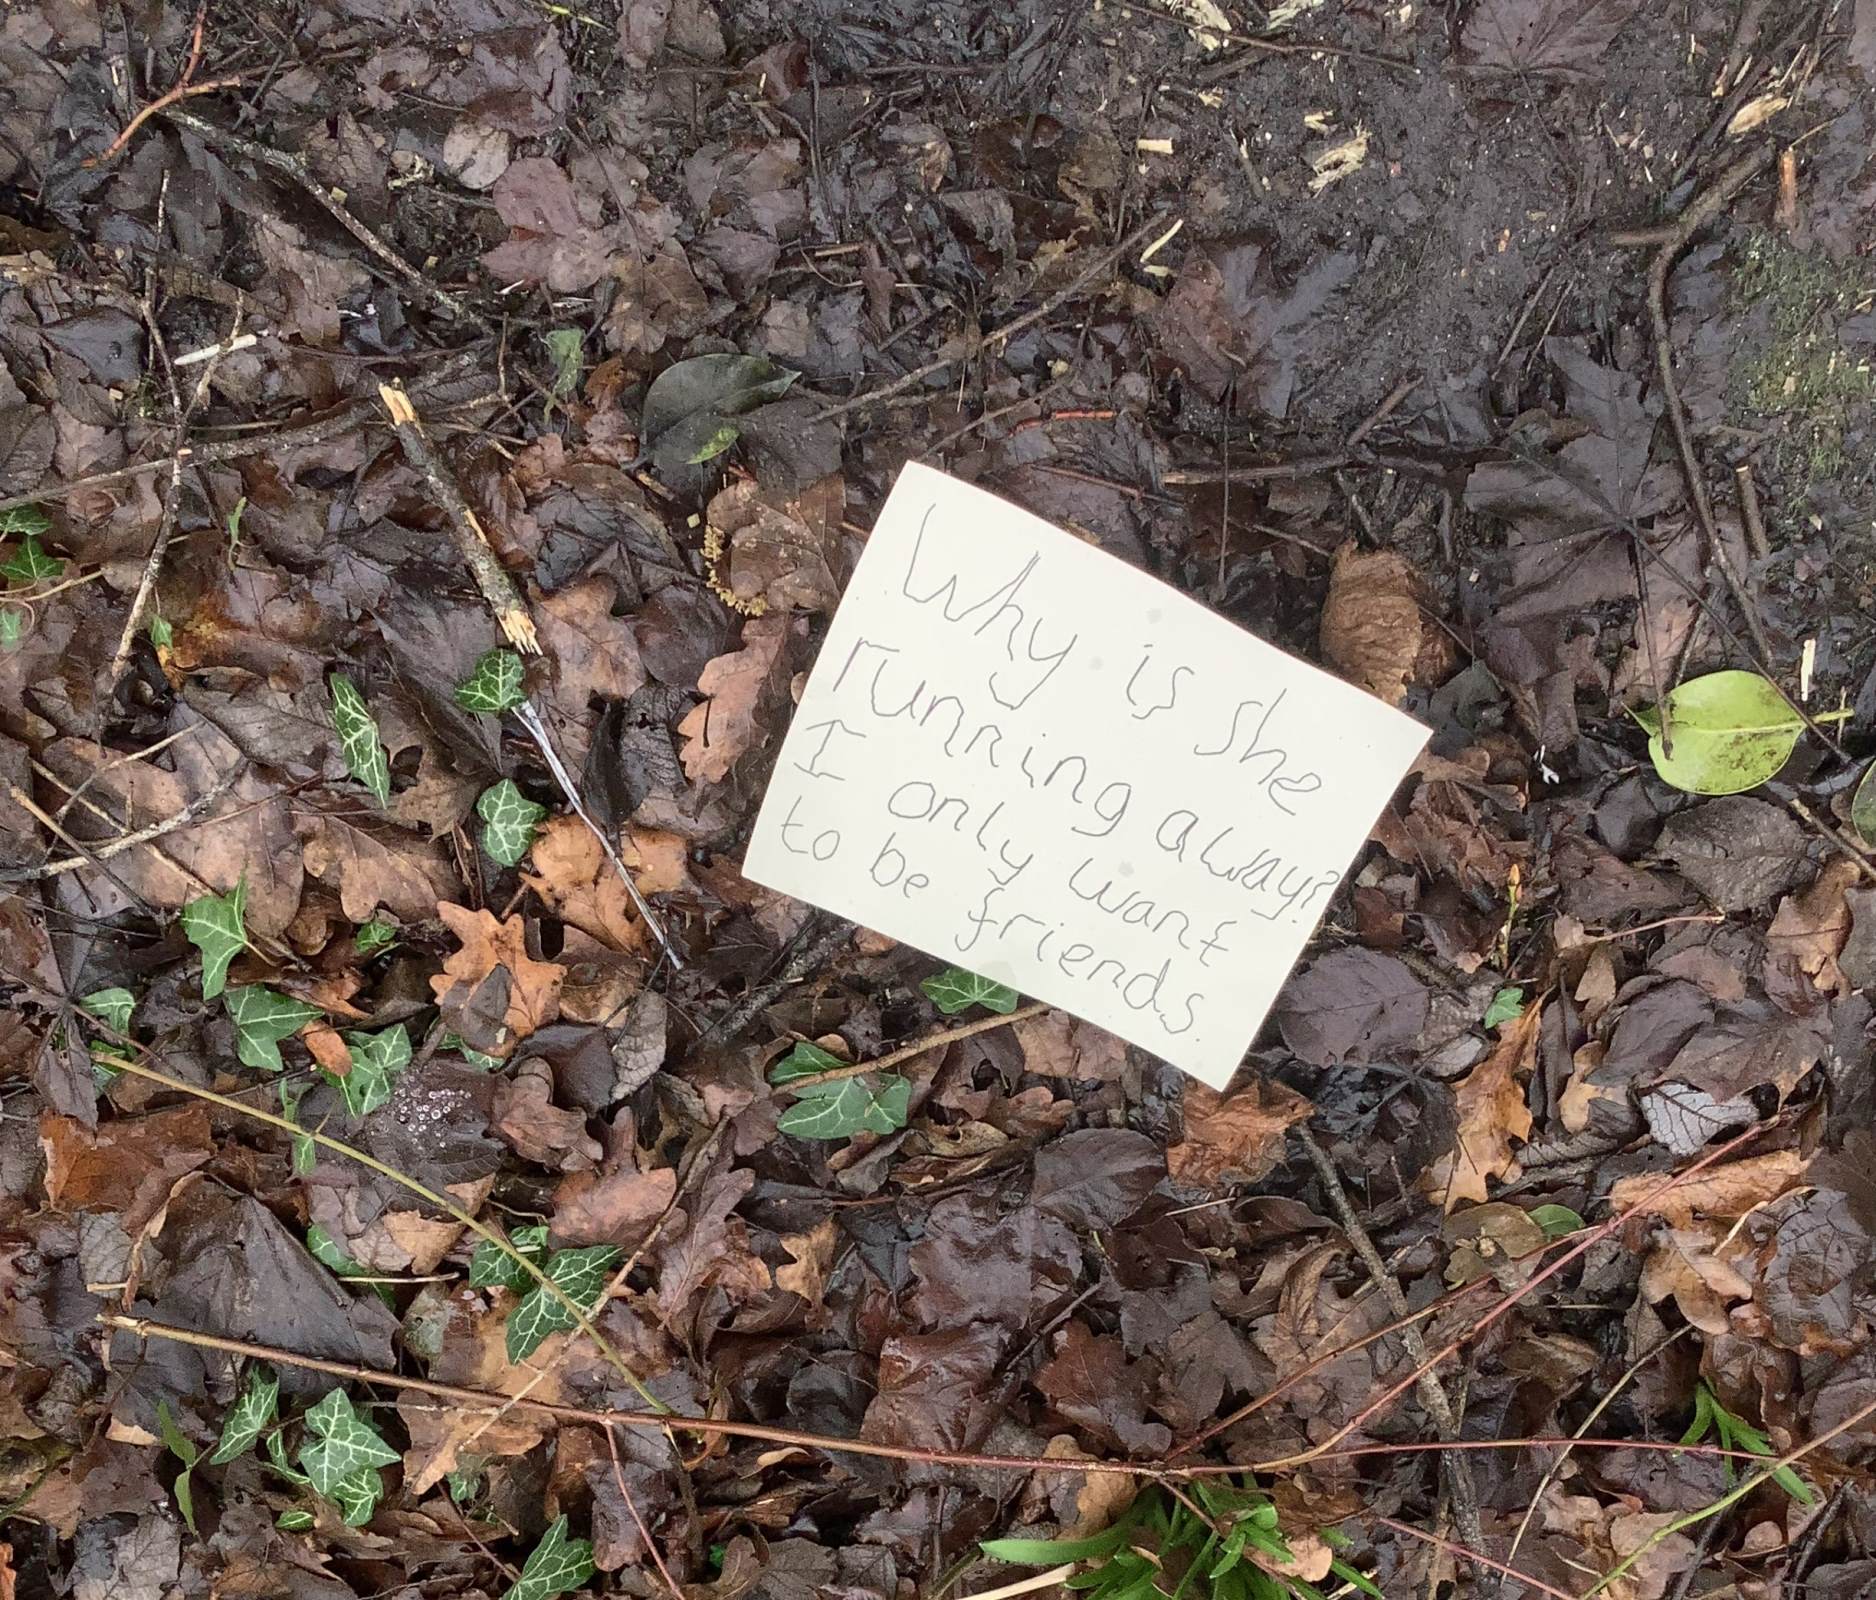 Why is she
running away?
I only want
to be friends.